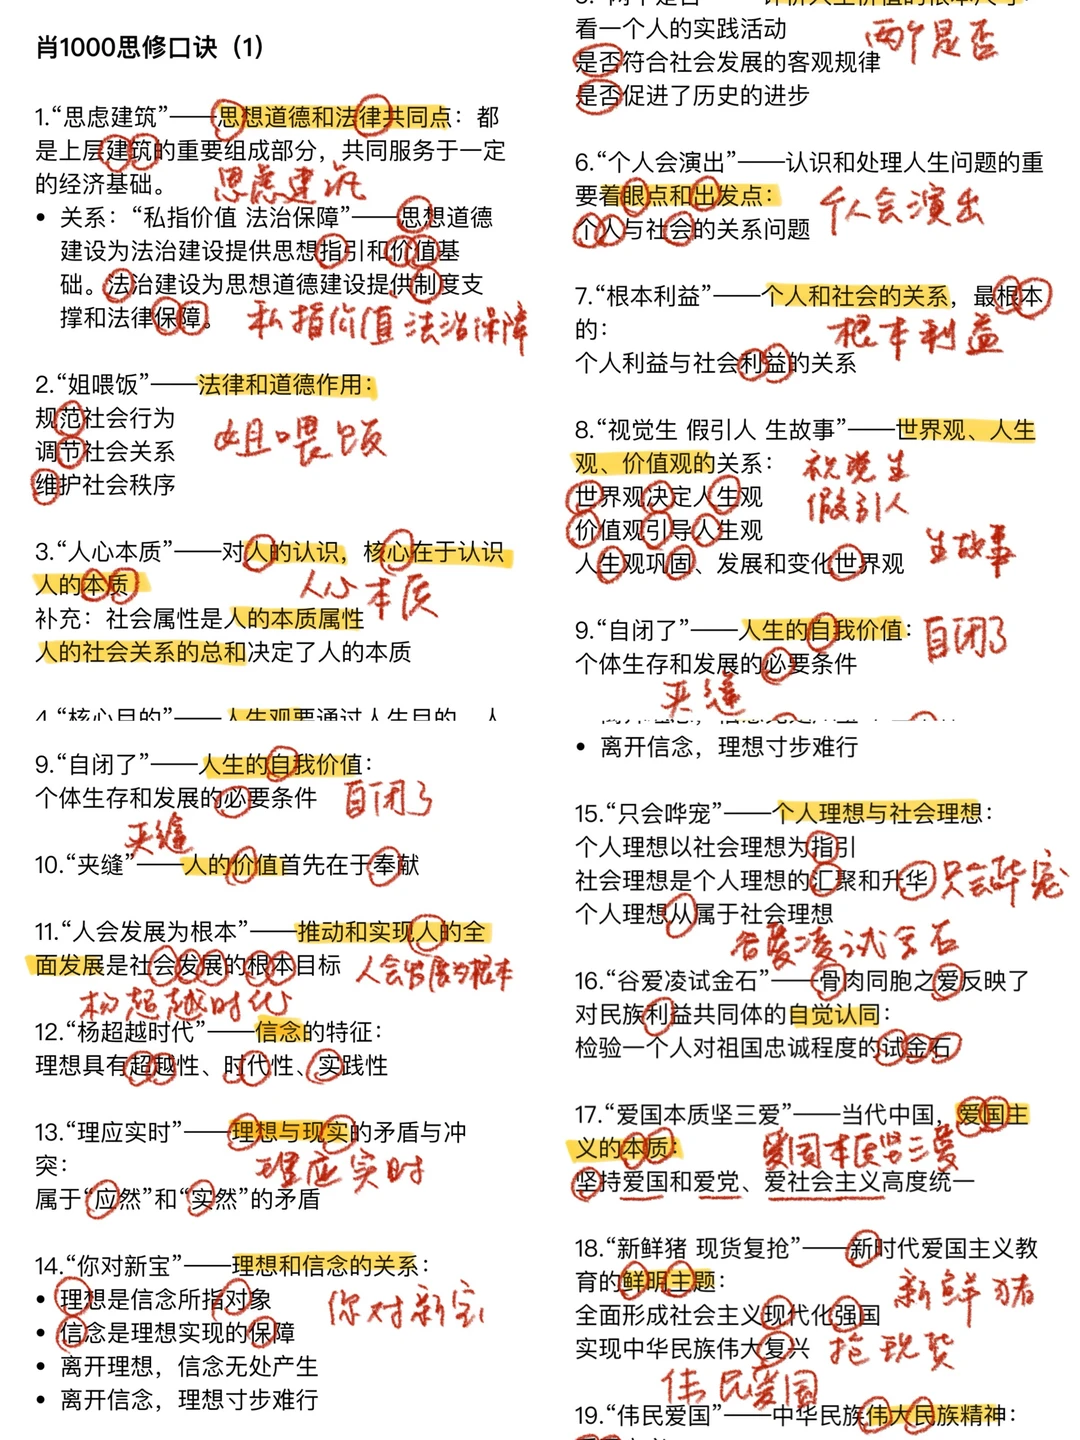 肖1000思修口诀（1）
1.“思虑建筑”——思想道德和法律共同点：都
是上层建筑的重要组成部分，共同服务于一定
的经济基础。
思虑建筑
• 关系：“私指价值 法治保障”——思想道德
建设为法治建设提供思想指引和价值基
础。法治建设为思想道德建设提供制度支
撑和法律保障。
私指价值 法治保障
2.“姐喂饭”——法律和道德作用：
规范社会行为
调节社会关系
维护社会秩序
姐喂饭
3.“人心本质”——对人的认识，核心在于认识
人的本质
人心本质
补充：社会属性是人的本质属性
人的社会关系的总和决定了人的本质
4.“核心目的”——人生观要通过人生目的、人
看一个人的实践活动
两个是否
是否符合社会发展的客观规律
是否促进了历史的进步
6.“个人会演出”——认识和处理人生问题的重
要着眼点和出发点：
个人会演出
个人与社会的关系问题
7.“根本利益”——个人和社会的关系，最根本
的：
根本利益
个人利益与社会利益的关系
8.“视觉生 假引人 生故事”——世界观、人生
观、价值观的关系：
视觉生
世界观决定人生观
假引人
价值观引导人生观
生故事
人生观巩固、发展和变化世界观
9.“自闭了”——人生的自我价值：
自闭了
个体生存和发展的必要条件
夹缝
9.“自闭了”——人生的自我价值：
个体生存和发展的必要条件
自闭了
夹缝
10.“夹缝”——人的价值首先在于奉献
11.“人会发展为根本”——推动和实现人的全
面发展是社会发展的根本目标
人会发展为根本
杨超越时代
12.“杨超越时代”——信念的特征：
理想具有超越性、时代性、实践性
13.“理应实时”——理想与现实的矛盾与冲
突：
理应实时
属于“应然”和“实然”的矛盾
14.“你对新宝”——理想和信念的关系：
• 理想是信念所指对象
你对新宝
• 信念是理想实现的保障
• 离开理想，信念无处产生
• 离开信念，理想寸步难行
• 离开信念，理想寸步难行
15.“只会哗宠”——个人理想与社会理想：
个人理想以社会理想为指引
社会理想是个人理想的汇聚和升华
只会哗宠
个人理想从属于社会理想
谷爱凌试金石
16.“谷爱凌试金石”——骨肉同胞之爱反映了
对民族利益共同体的自觉认同：
检验一个人对祖国忠诚程度的试金石
17.“爱国本质坚三爱”——当代中国，爱国主
义的本质：
爱国本质坚三爱
坚持爱国和爱党、爱社会主义高度统一
18.“新鲜猪 现货复抢”——新时代爱国主义教
育的鲜明主题：
新鲜猪
全面形成社会主义现代化强国
实现中华民族伟大复兴
抢现货
伟民爱国
19.“伟民爱国”——中华民族伟大民族精神：